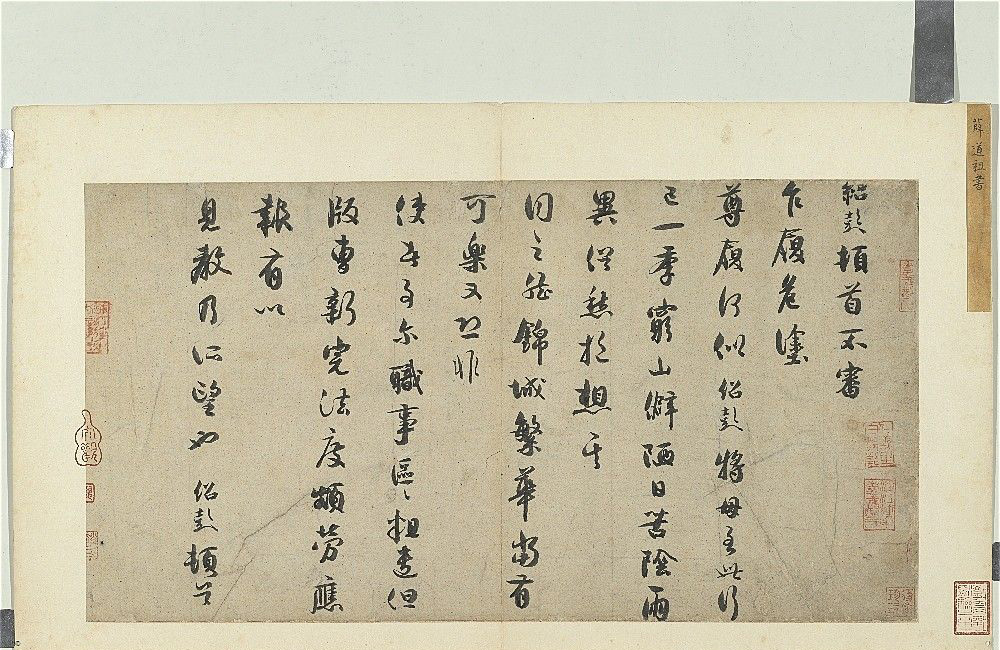 薛道祖書
紹彭頓首不審
乍履危塗
尊履何似紹彭將母至此行
已一季窮山僻陋日苦陰雨
異從愁於想其
同之能錦城繁華尚有
可樂又恐非
使君了爾職事區〻粗遣但
版曹新完法度頗勞應
報有以
見教乃所望也 紹彭頓首